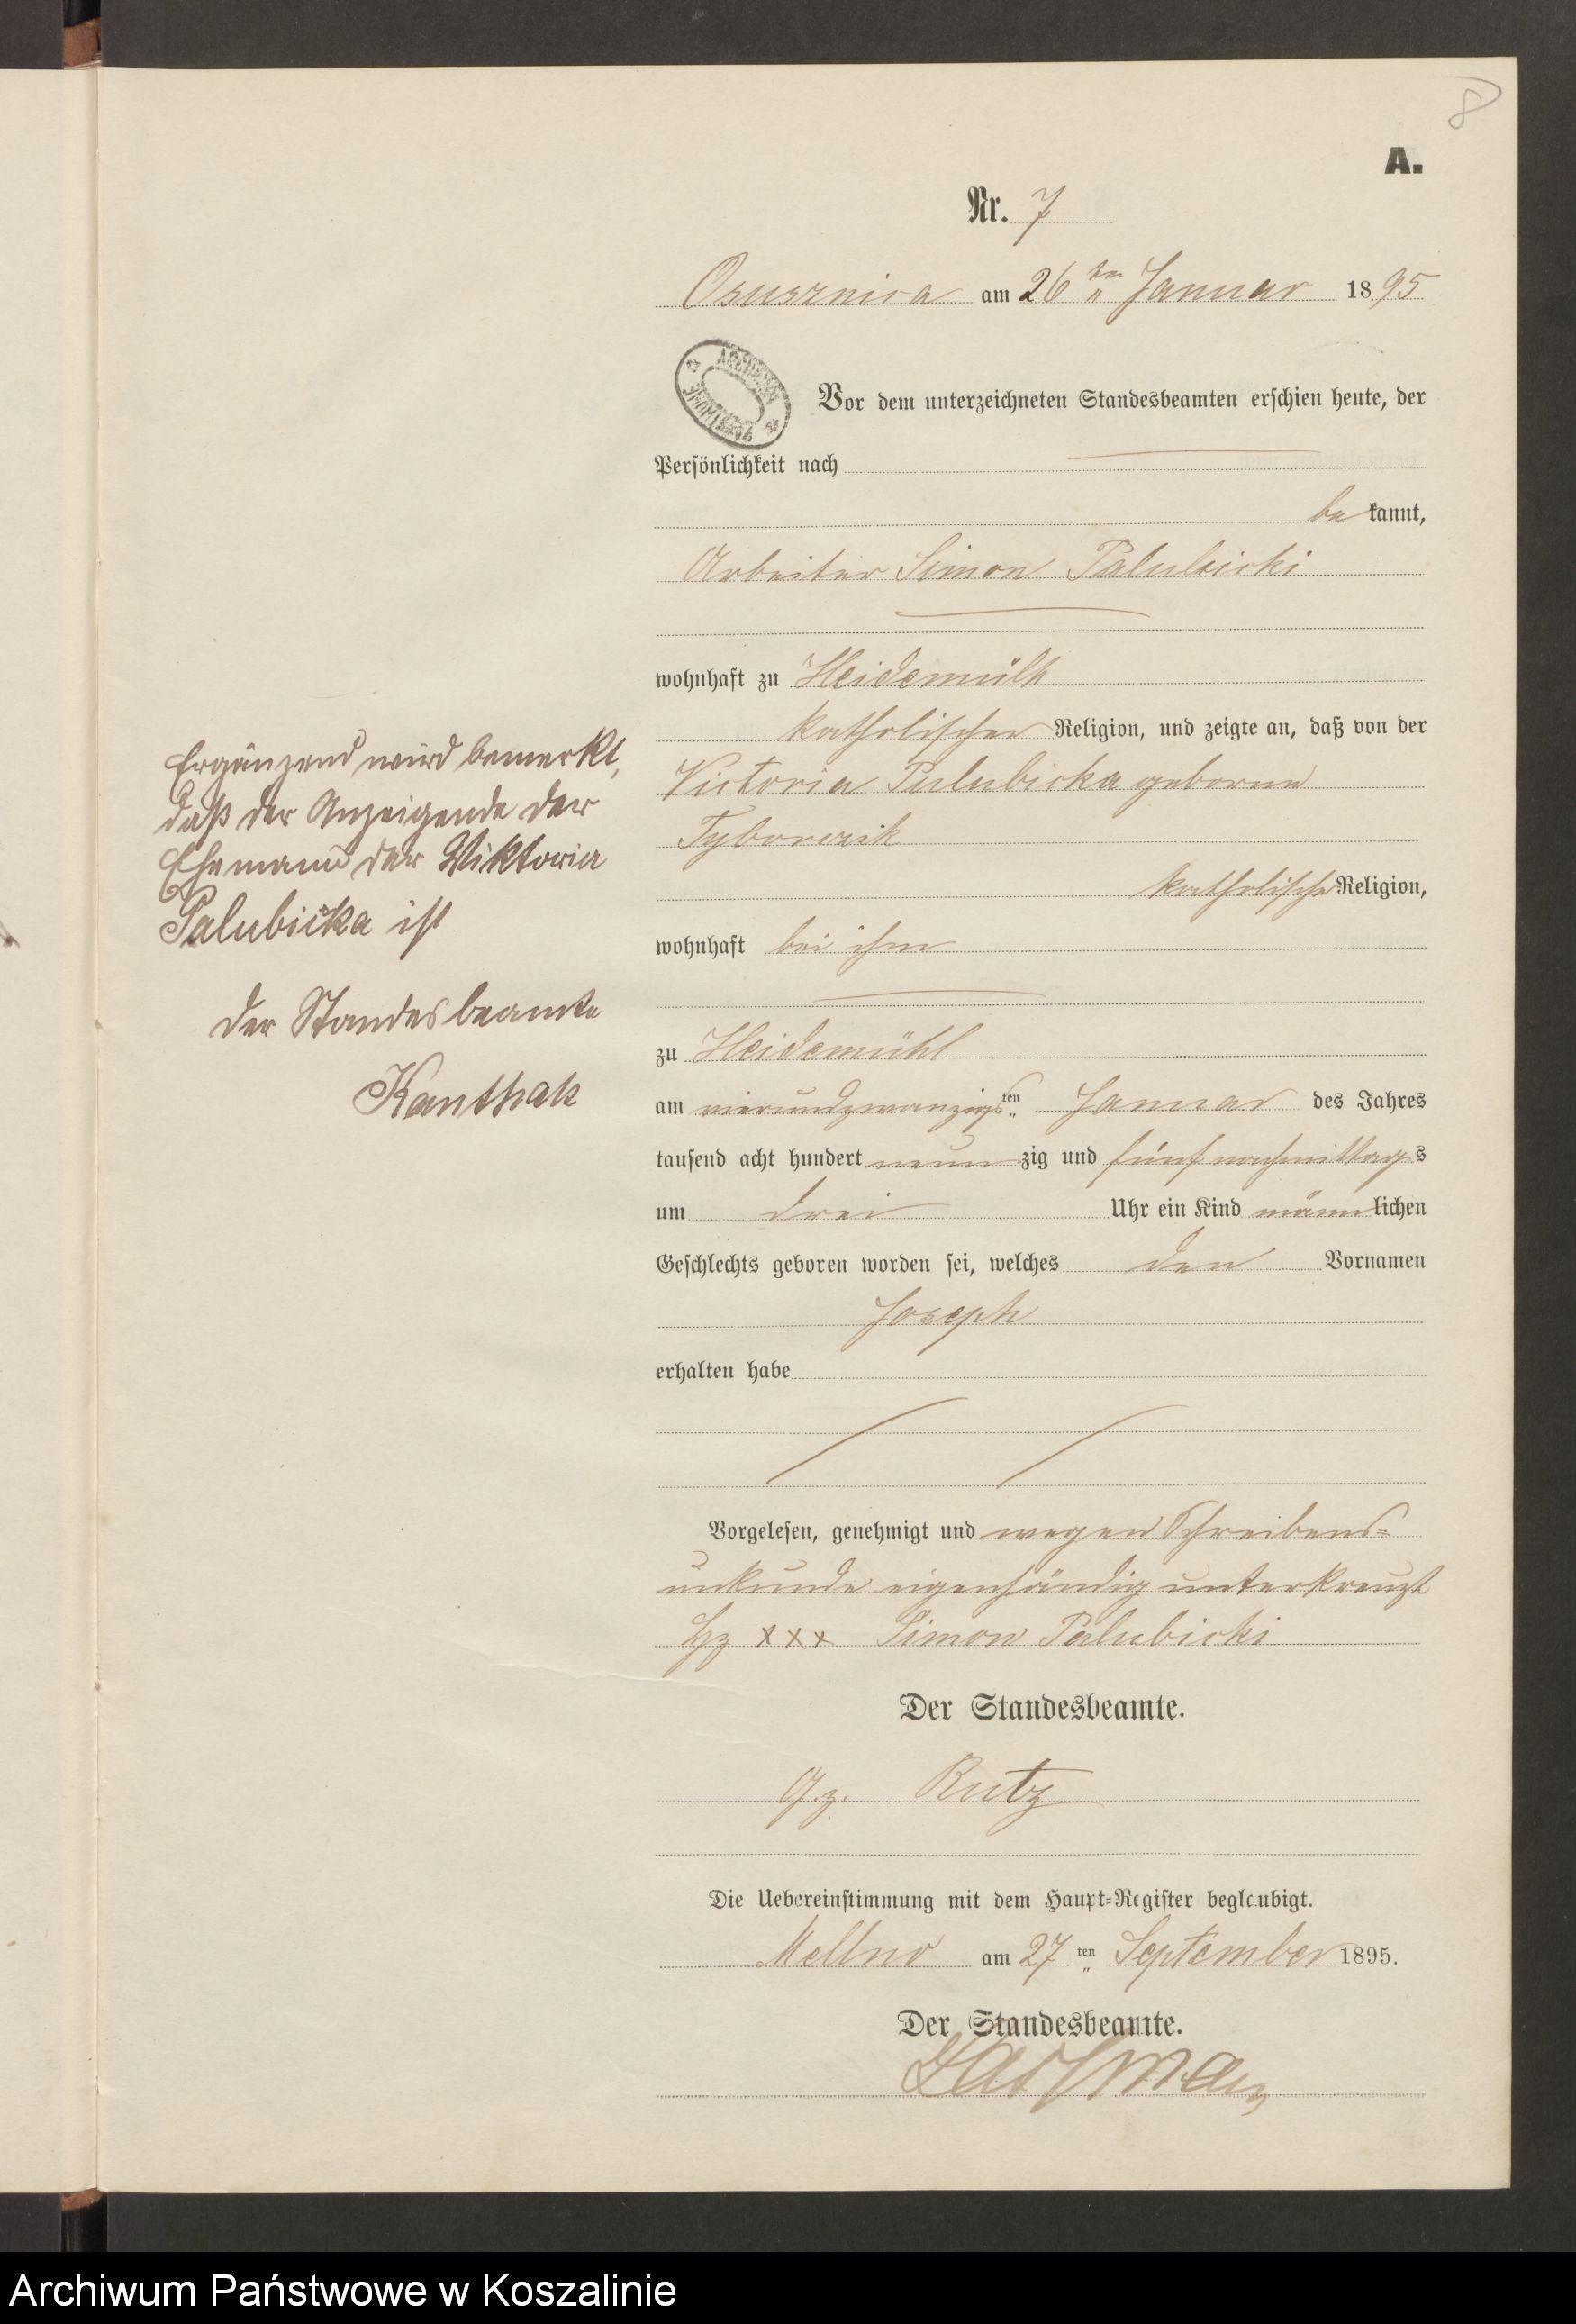 8
A.
Nr. 7
Osusznica am 26ten Januar 1895
Vor dem unterzeichneten Standesbeamten erschien heute, der
Persönlichkeit nach
bekannt,
Arbeiter Simon Palubicki
wohnhaft zu Heidemühl
katholischer Religion, und zeigte an, daß von der
Victoria Palubicka geborene
Tyborczik
katholischer Religion,
wohnhaft bei ihm
zu Heidemühl
am vierundzwanzigsten Januar des Jahres
tausend acht hundert neunzig und fünf nachmittags
um drei Uhr ein Kind männlichen
Geschlechts geboren worden sei, welches den Vornamen
Joseph
erhalten habe
Vorgelesen, genehmigt und wegen Schreibens-
unkunde eigenhändig unterkreuzt
Hz xxx Simon Palubicki
Der Standesbeamte.
gz. Rutz
Die Uebereinstimmung mit dem Haupt-Register beglaubigt.
Mellno am 27ten September 1895.
Der Standesbeamte.
Ergänzend wird bemerkt,
daß der Anzeigende der
Ehemann der Viktoria
Palubicka ist
Der Standesbeamte
Kanthak
Archiwum Państwowe w Koszalinie